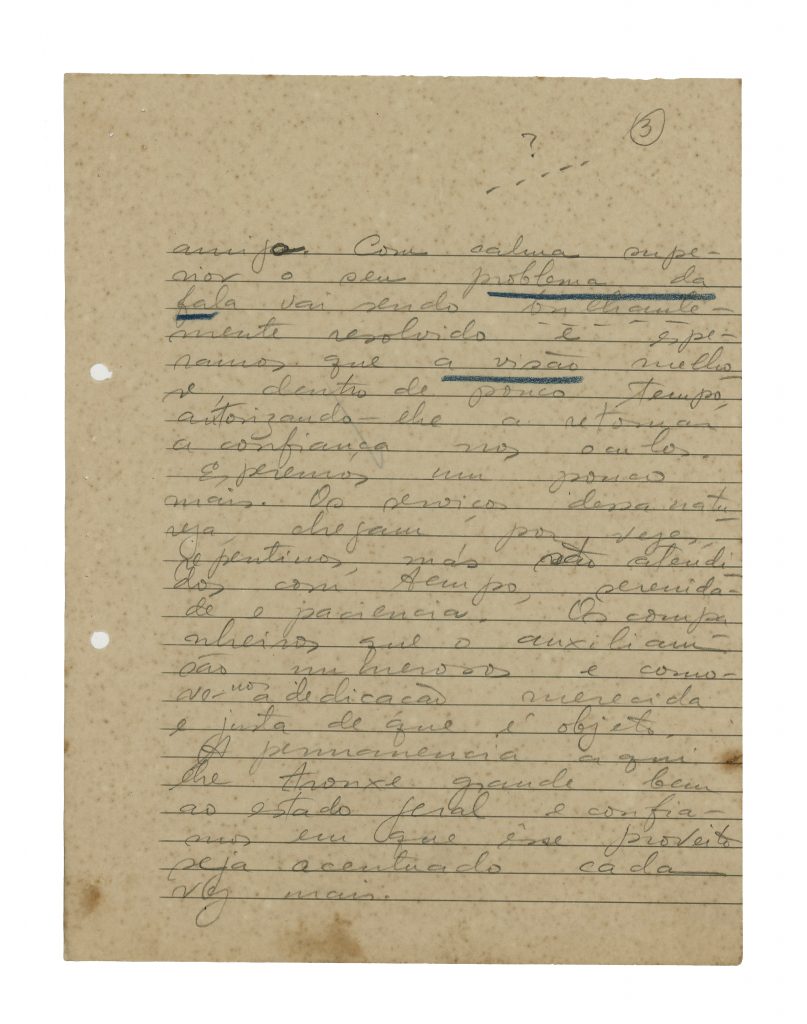 3
?
amigo. Com calma supe-
rior o seu problema da
fala vai sendo brilhante-
mente resolvido e espe-
ramos que a visão melho-
re, dentro de pouco tempo,
autorizando-lhe a retomar
a confiança nos oculos.
Esperemos um pouco
mais. Os serviços dessa natu-
reza chegam, por vezes,
repentinos, mas são atendi
dos com tempo, serenida-
de e paciencia. Os compa
nheiros que o auxiliam
são numerosos e como-
ve-nos a dedicação merecida
e justa de que é objeto.
A permanencia aqui
lhe trouxe grande bem
ao estado geral e confia-
mos em que êsse proveito
seja acentuado cada
vez mais.